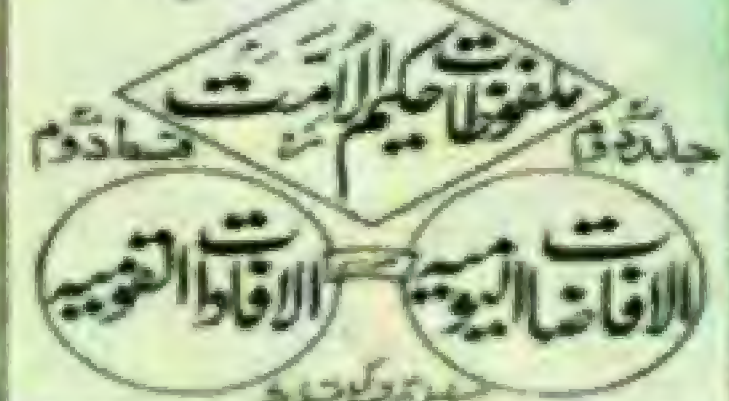 ملفوظات حکیم الامت
جلد دوم قسط دوم
الافاضات الیومیہ من الافادات القومیہ